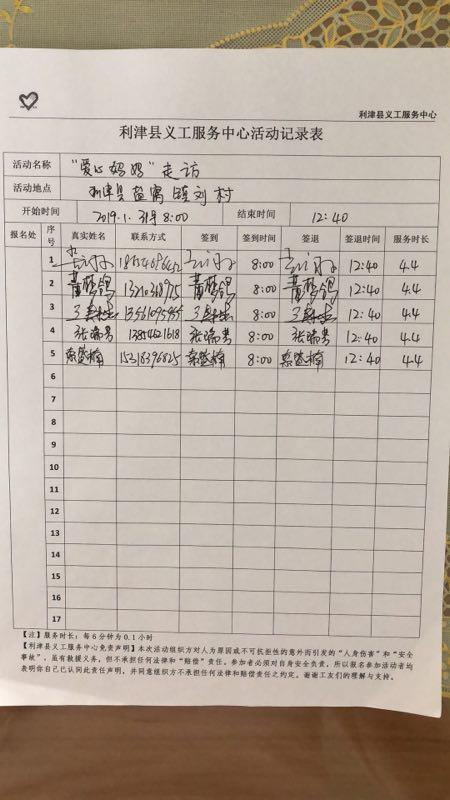 利津县义工服务中心
利津县义工服务中心活动记录表
活动名称 “爱心妈妈”走访
活动地点 利津县盐窝镇刘村
开始时间 2019.1.31号8:00 结束时间 12:40
报名处 序号 真实姓名 联系方式 签到 签到时间 签退 签退时间 服务时长
1 8:00 12:40 4.4
2 8:00 12:40 4.4
3 8:00 12:40 4.4
4 张瑞芳 张瑞芳 8:00 张瑞芳 12:40 4.4
5 秦楚楠 15318396825 秦楚楠 8:00 秦楚楠 12:40 4.4
6
7
8
9
10
11
12
13
14
15
16
17
【注】服务时长：每6分钟为0.1小时
【利津县义工服务中心免责声明】本次活动组织方对人为原因或不可抗拒性的意外而引发的“人身伤害”和“安全
事故”，虽有救援义务，但不承担任何法律和“赔偿”责任。参加者必须对自身安全负责。所以报名参加活动者均
表明你自己已认同此责任声明。并同意组织方不承担任何法律和赔偿责任之约定。谢谢工友们的理解与支持。